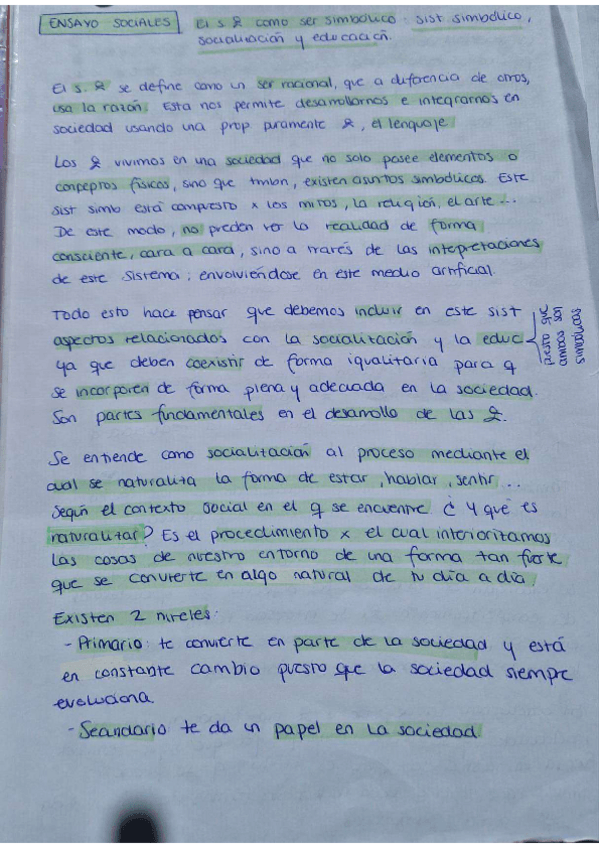 ENSAYO SOCIALES
El s. 옷 como ser simbólico: sist simbólico,
socialización y educación.
El s. 옷 se define como un ser racional, que a diferencia de otros,
usa la razón. Esta nos permite desarrollarnos e integrarnos en
sociedad usando una prop puramente 옷, el lenguaje
Los 옷 vivimos en una sociedad que no solo posee elementos o
conpepros físicos, sino que tmbn, existen asuntos simbólicos. Este
sist simb está compuesto x los mitos, la religión, el arte...
De este modo, no preden ver la realidad de forma
consciente, cara a cara, sino a través de las intepretaciones
de este sistema; envolviéndose en este medio artificial.
Todo esto hace pensar que debemos incluir en este sist
aspectos relacionados con la socialización y la educ
puesto que
los 옷 somos
ya que deben coexistir de forma igualitaria para q
se incorporen de forma plena y adecuada en la sociedad.
Son partes fundamentales en el desarrollo de las 옷.
Se entiende como socialización al proceso mediante el
cual se naturaliza la forma de estar, hablar, sentir...
según el contexto social en el q se encuentre ¿Y qué es
naturalizar? Es el procedimiento x el cual interiorizamos
las cosas de nuestro entorno de una forma tan fuerte
que se convierte en algo natural de tu día a día.
Existen 2 niveles:
- Primario: te convierte en parte de la sociedad y está
en constante cambio puesto que la sociedad siempre
evoluciona.
- Secundario: te da un papel en la sociedad.